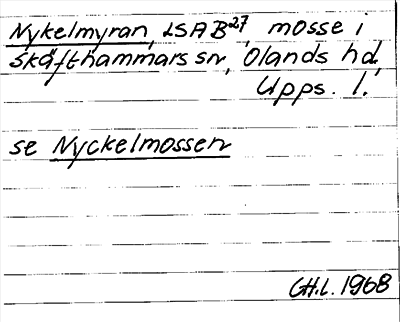 Nykelmyran, LSA B27, mosse i
Skäfthammars sn, Olands hd,
Upps. l.
se Nyckelmossen
G.H.l. 1968